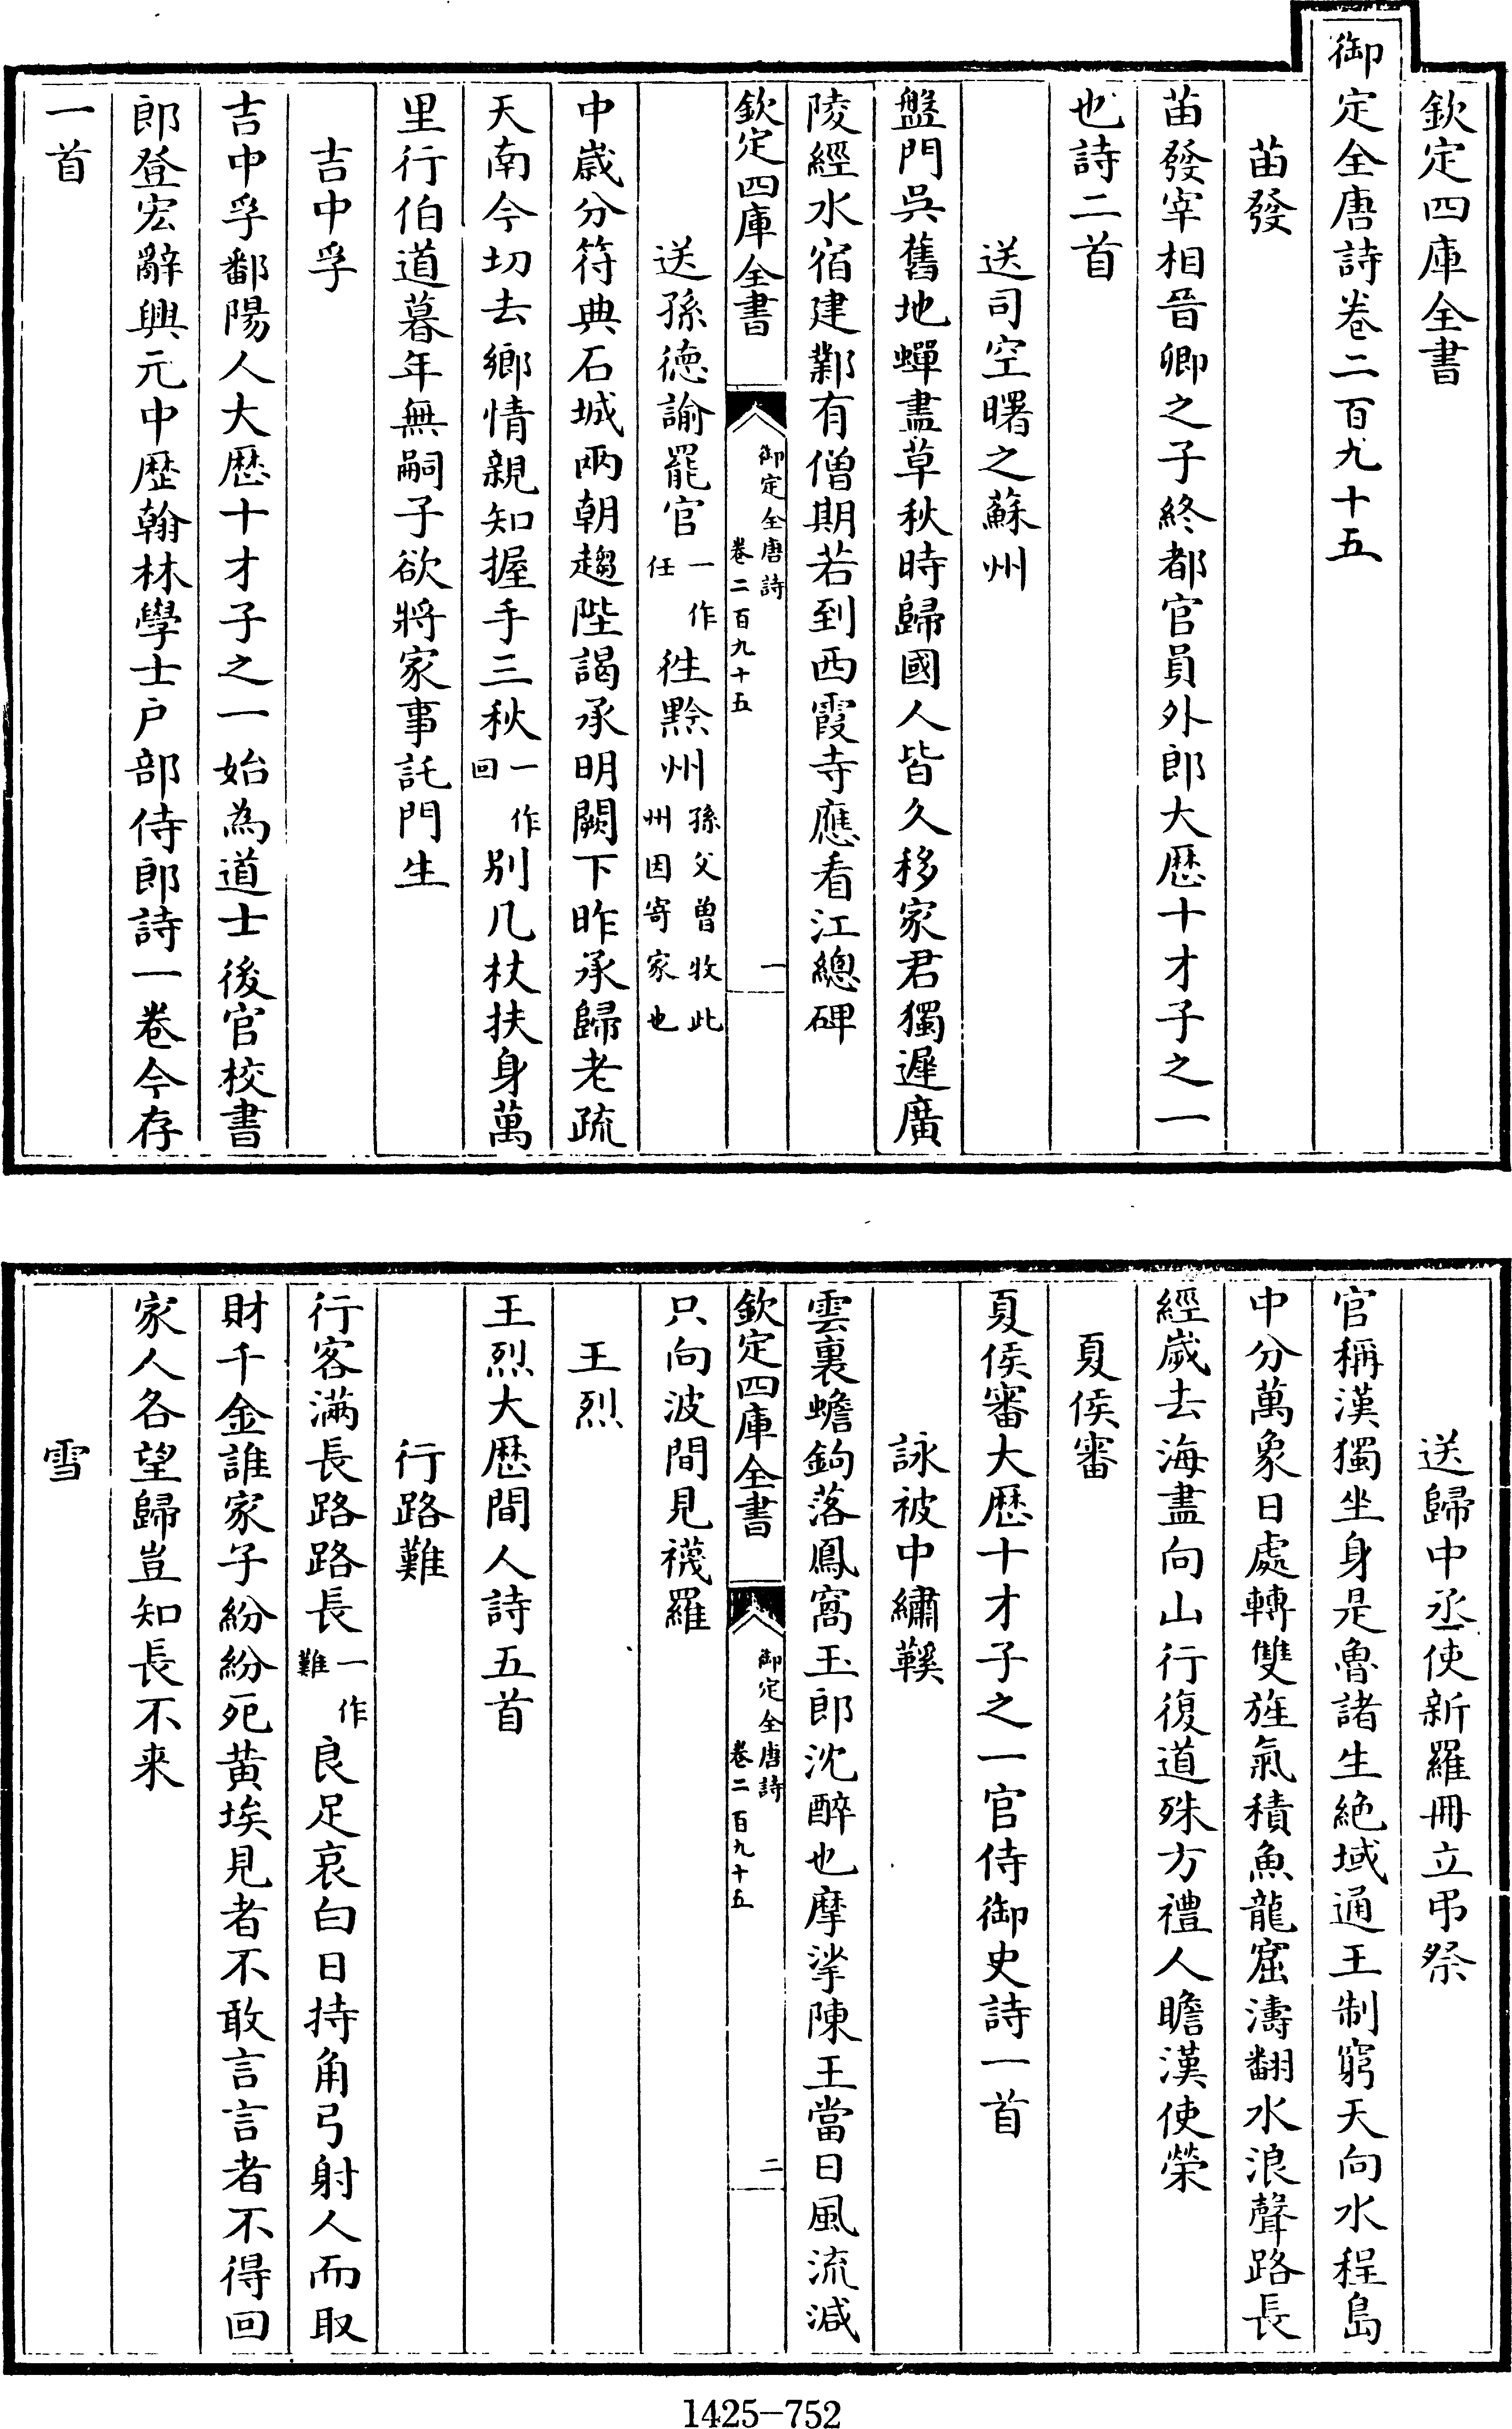 欽定四庫全書
御定全唐詩卷二百九十五
苗發
苗發宰相晉卿之子終都官員外郎大歴十才子之一
也詩二首
送司空曙之蘇州
盤門吳舊地蟬盡草秋時歸國人皆久移家君獨遲廣
陵經水宿建鄴有僧期若到西霞寺應看江總碑
欽定四庫全書
御定全唐詩
卷二百九十五
一
送孫德諭罷官一作任徃黔州孫父曽牧此州因寄家也
中嵗分符典石城兩朝趨陛謁承明闕下昨承歸老疏
天南今切去鄉情親知握手三秋一作回别几杖扶身萬
里行伯道暮年無嗣子欲將家事託門生
吉中孚
吉中孚鄱陽人大歴十才子之一始為道士後官校書
郎登宏辭興元中歴翰林學士户部侍郎詩一卷今存
一首
送歸中丞使新羅冊立弔祭
官稱漢獨坐身是魯諸生絶域通王制窮天向水程島
中分萬象日處轉雙旌氣積魚龍窟濤翻水浪聲路長
經嵗去海盡向山行復道殊方禮人瞻漢使榮
夏侯審
夏侯審大歴十才子之一官侍御史詩一首
詠被中繡鞵
雲裏蟾鉤落鳳窩玉郎沈醉也摩挲陳王當日風流減
欽定四庫全書
御定全唐詩
卷二百九十五
二
只向波間見襪羅
王烈
王烈大歴間人詩五首
行路難
行客滿長路路長一作難良足哀白日持角弓射人而取
財千金誰家子紛紛死黄埃見者不敢言言者不得回
家人各望歸豈知長不来
雪
1425-752